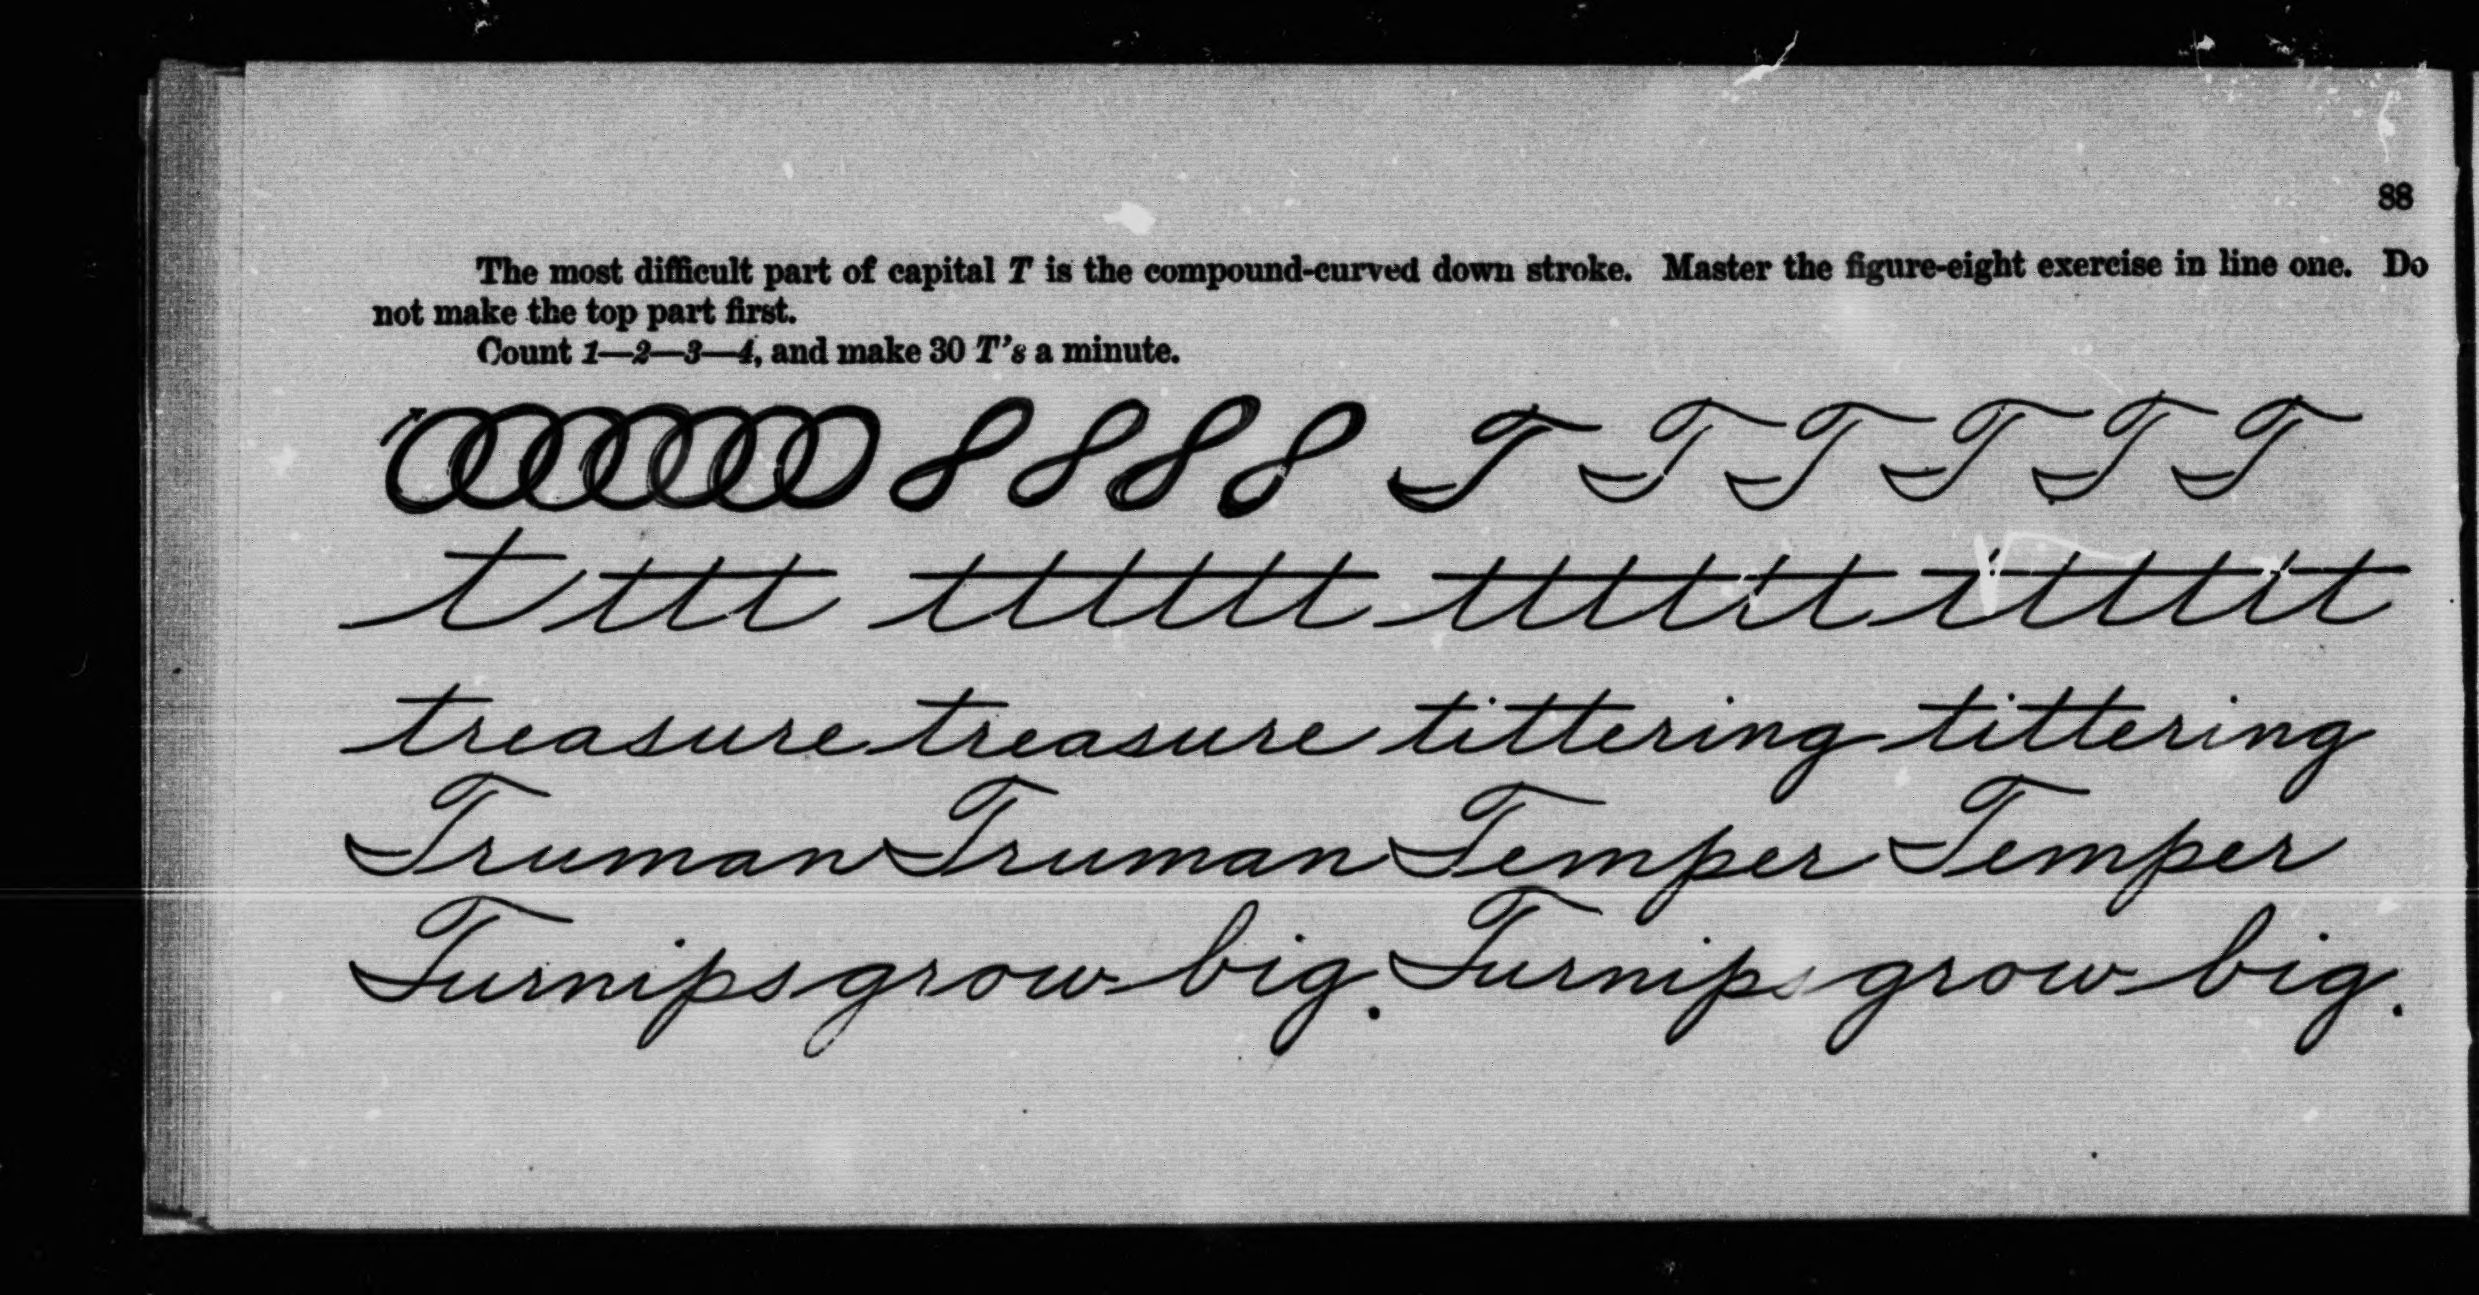 88
The most difficult part of capital T is the compound-curved down stroke. Master the figure-eight exercise in line one. Do
not make the top part first.
Count 1—2—3—4, and make 30 T's a minute.
8 8 8 8 T T T T T T
t ttt ttttt tttttt tttttt
treasure treasure tittering tittering
Truman Truman Temper Temper
Turnips grow big. Turnips grow big.